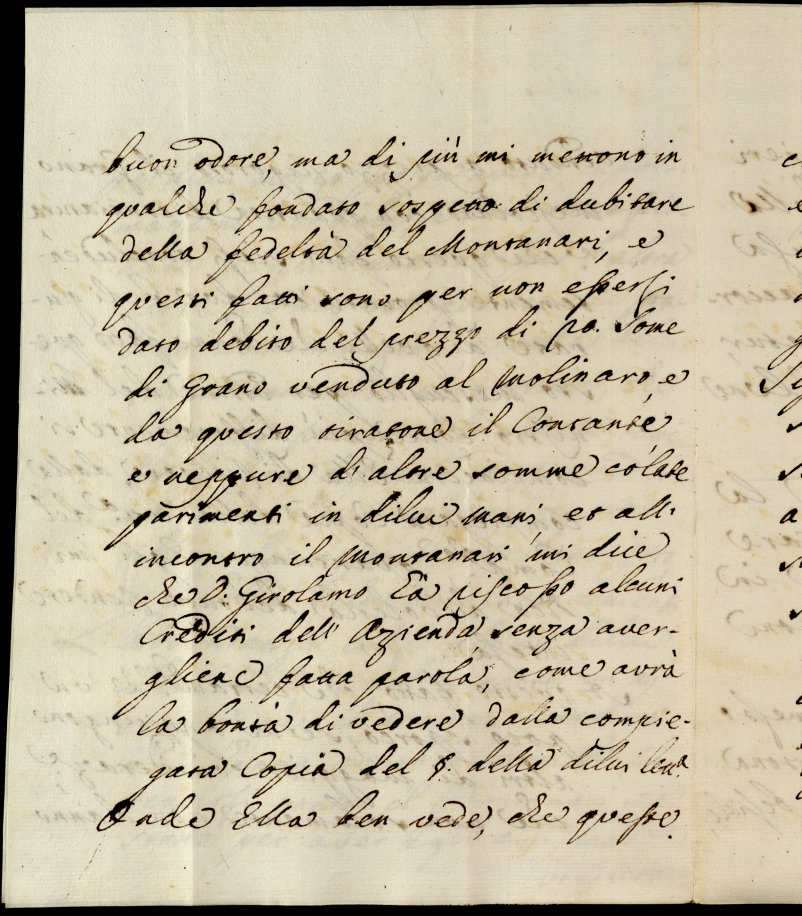 buon odore, ma di più mi mettono in
qualche fondato sospetto di dubitare
della fedeltà del Montanari, e
questi fatti sono per non essersi
dato debito del prezzo di some
di Grano venduto al Molinaro, e
da questo tiratone il Contante
e neppure di altre somme colate
parimenti in dilui mani, et all'
incontro il Montanari mi dice
che D: Girolamo hà riscosso alcuni
Crediti dell' Azienda, senza aver-
gliene fatta parola, come avrà
la bontà di vedere dalla compie-
gata Copia del §. della dilui lett.ª
Onde Ella ben vede, che queste